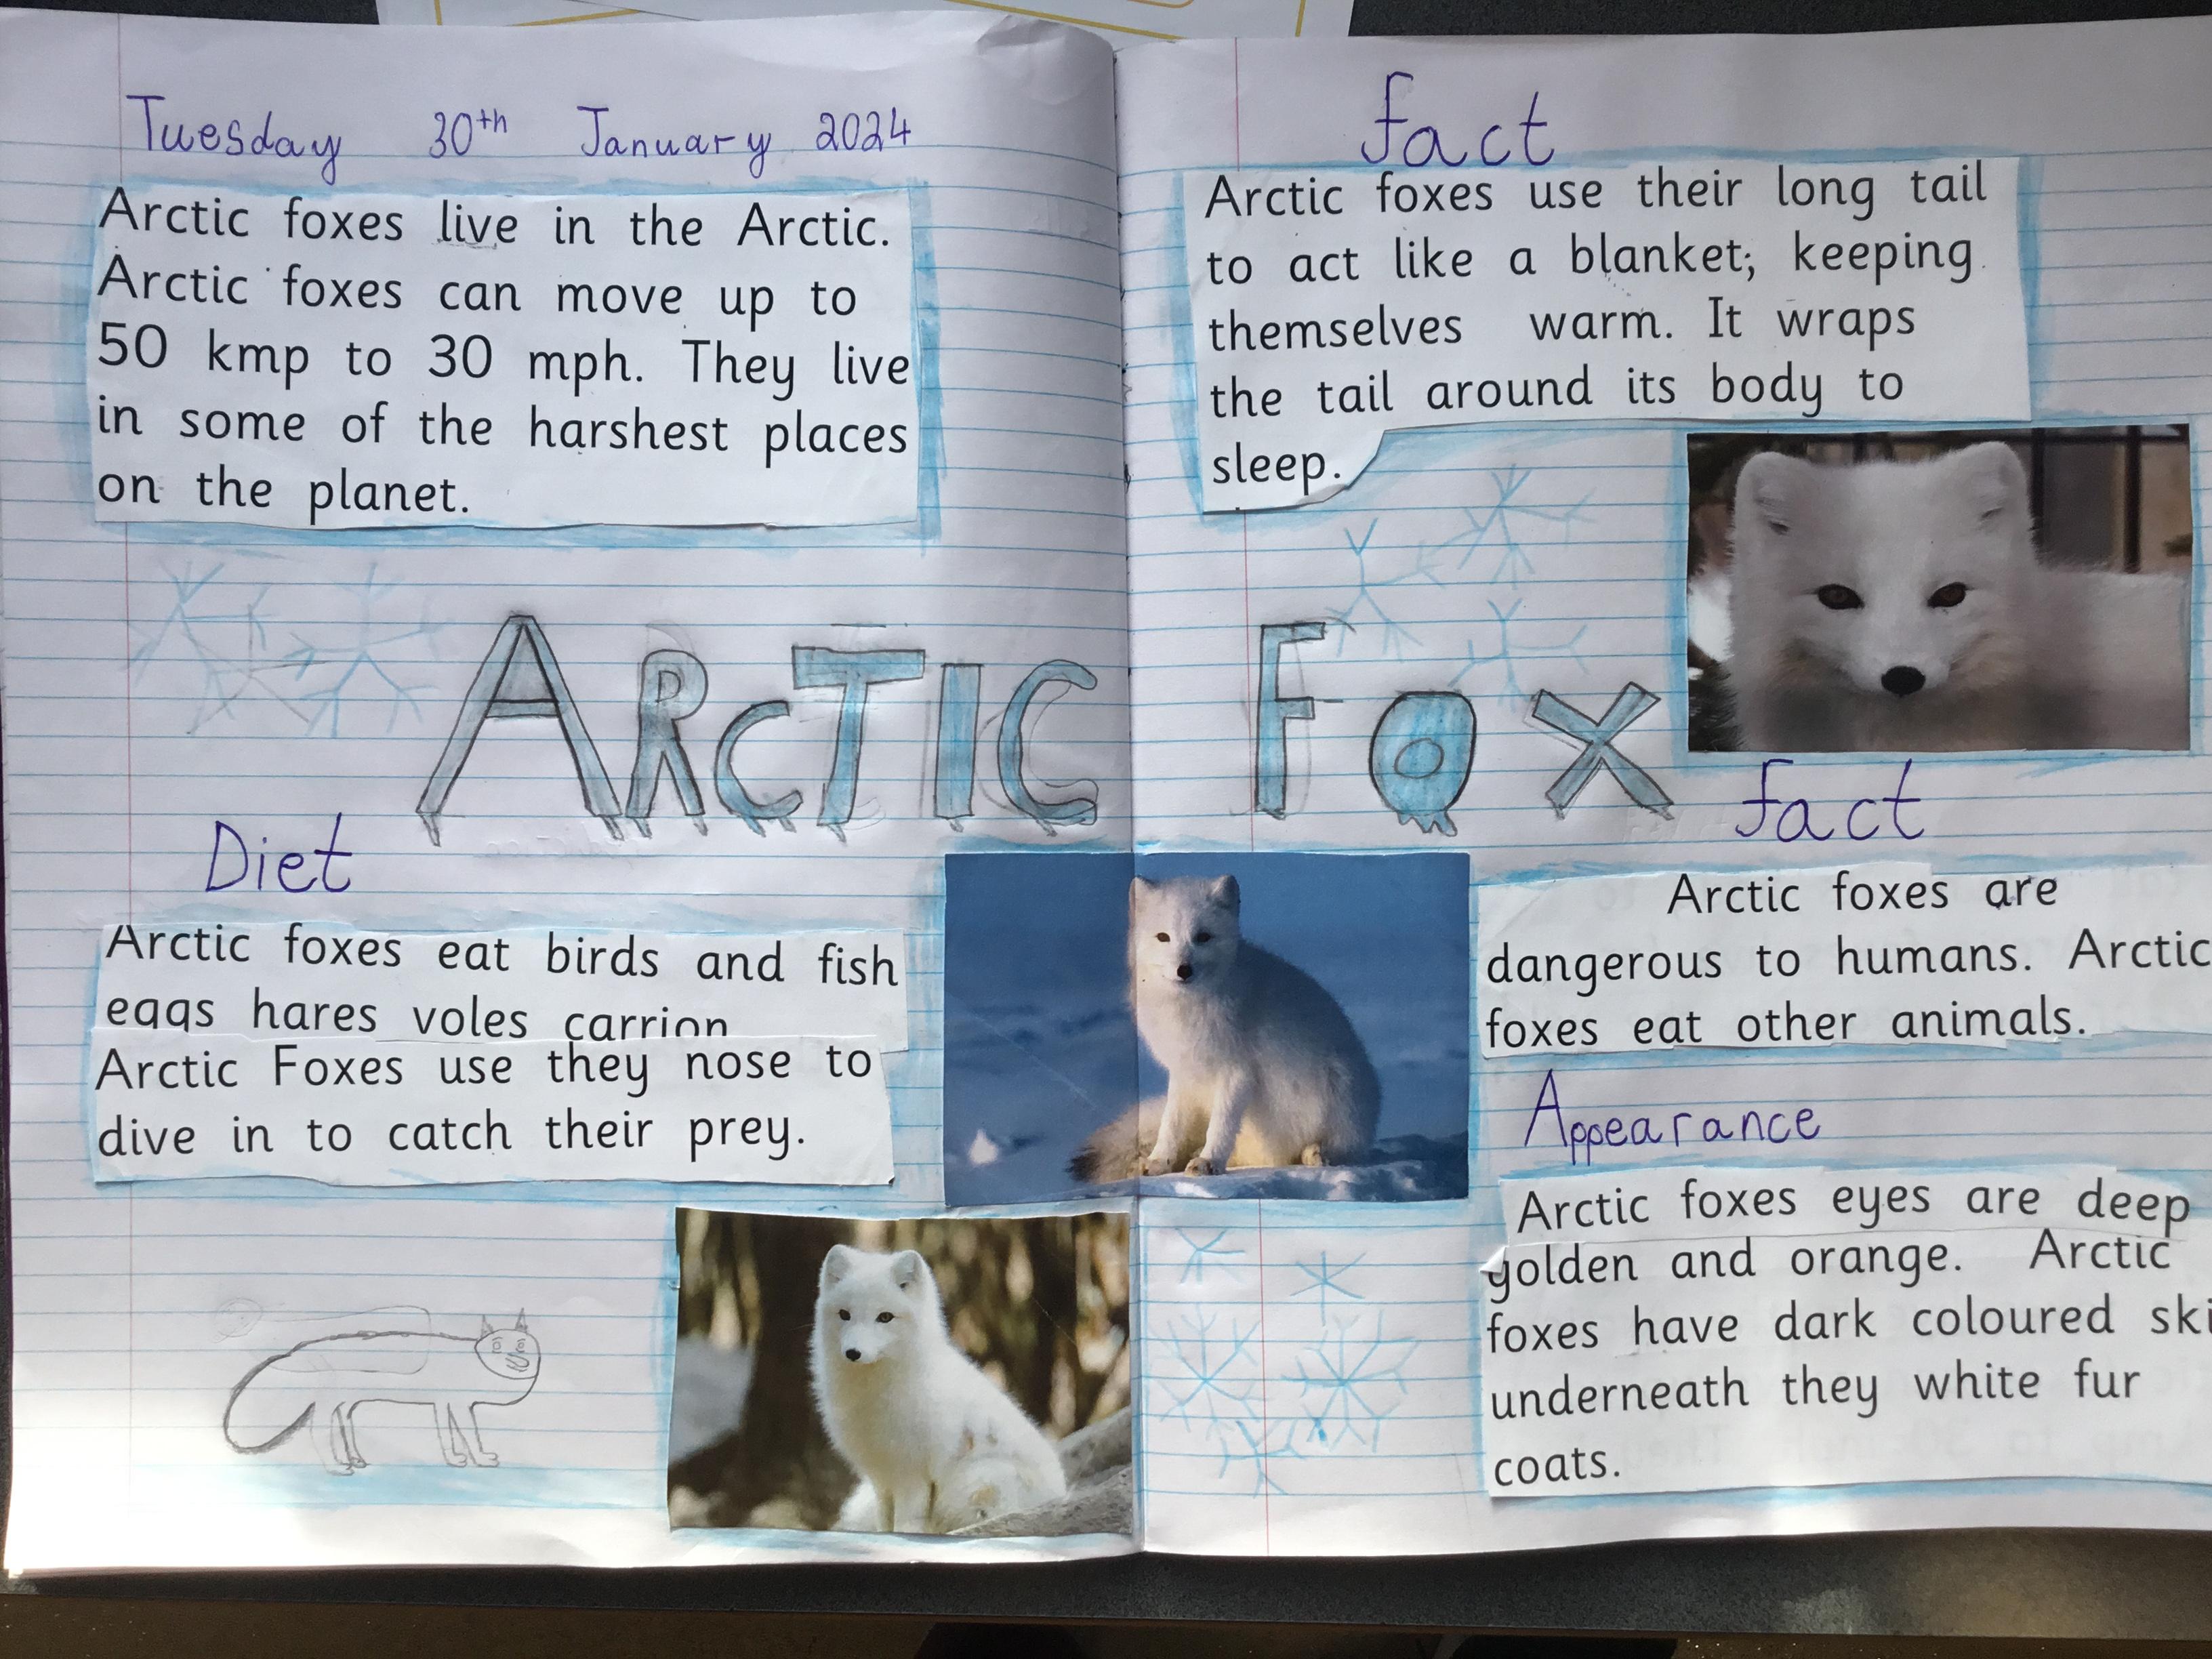 Tuesday 30th January 2024
Arctic foxes live in the Arctic.
Arctic foxes can move up to
50 kmp to 30 mph. They live
in some of the harshest places
on the planet.
ARCTIC FOX
Diet
Arctic foxes eat birds and fish
eggs hares voles carrion
Arctic Foxes use they nose to
dive in to catch their prey.
fact
Arctic foxes use their long tail
to act like a blanket; keeping
themselves warm. It wraps
the tail around its body to
sleep.
fact
Arctic foxes are
dangerous to humans. Arctic
foxes eat other animals.
Appearance
Arctic foxes eyes are deep
golden and orange. Arctic
foxes have dark coloured ski
underneath they white fur
coats.